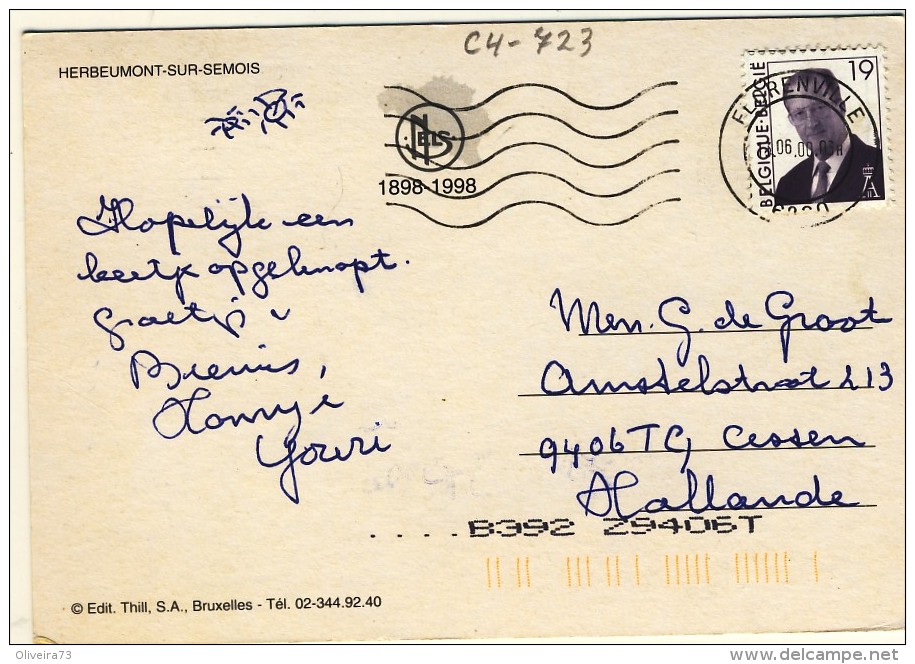 C4-723
HERBEUMONT-SUR-SEMOIS
NELS
1898-1998
FLORENVILLE
06.00
BELGIQUE·BELGIË
19
Hopelijk een
beetje opgeknapt.
Groetjes
Dennis,
Youri
Men. G. de Groot
Amstelstraat 213
9406TG Assen
Hollande
....B392 Z9406T
© Edit. Thill, S.A., Bruxelles - Tél. 02-344.92.40
Oliveira73
www.delcampe.net